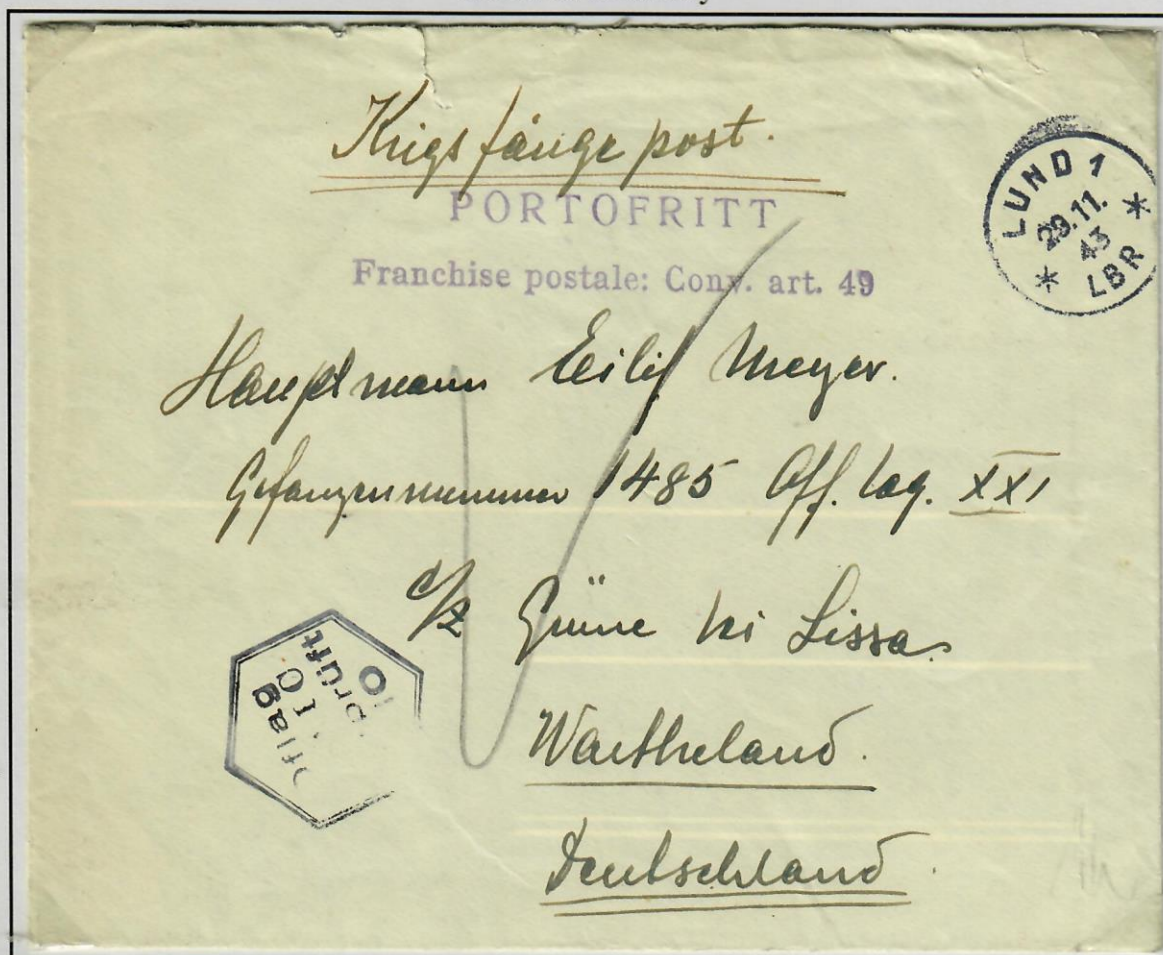 Krigsfångepost.
PORTOFRITT
Franchise postale: Conv. art. 49
LUND 1
29.11.
43
* LBR *
Hauptmann Eilif Meyer.
Gefangennummer 1485 Off. lag. XXI
c/z Grüne bei Lissa.
Wartheland.
Deutschland.
flag
prüft
10